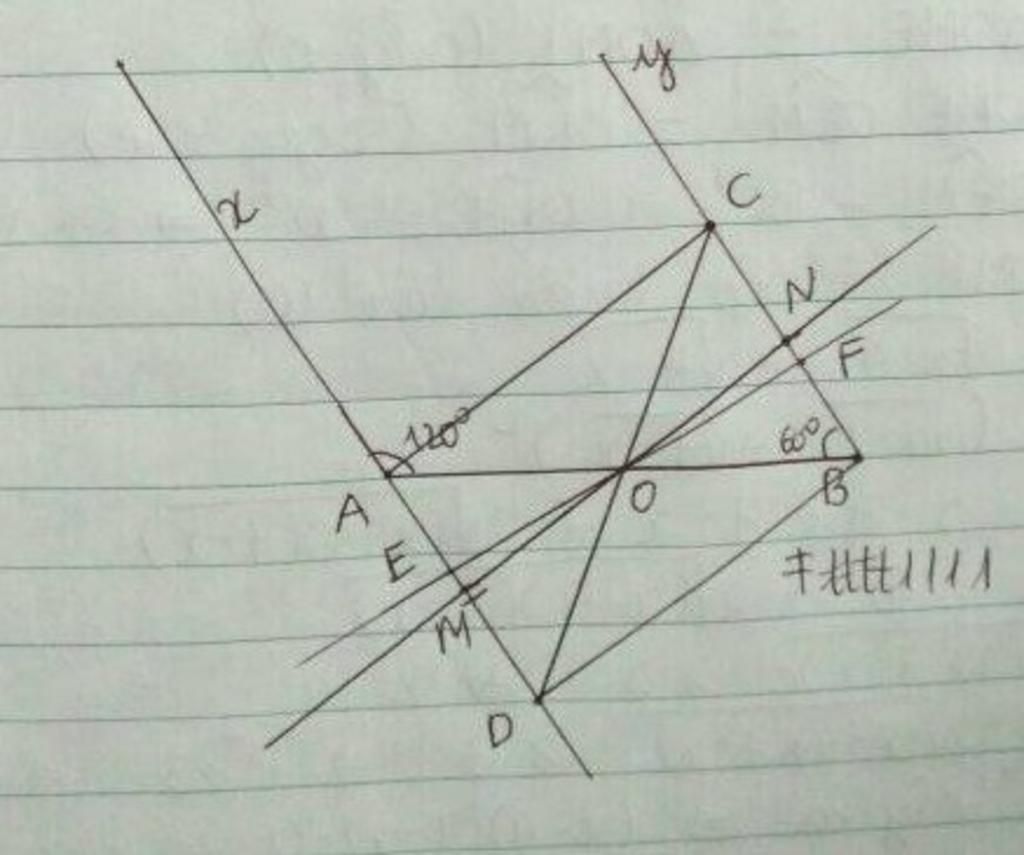 y
x
C
N
F
120°
60°
A
O
B
E
M
D